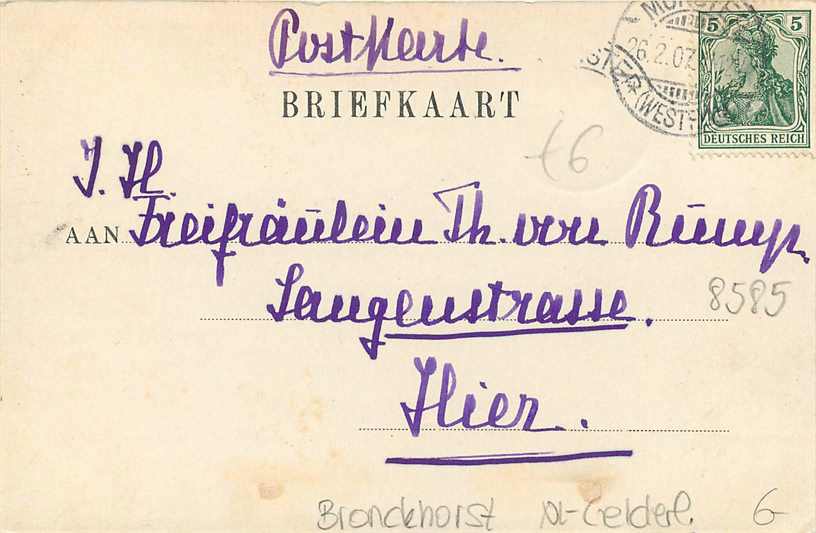 Postkarte.
BRIEFKAART
5 5
DEUTSCHES REICH
26.2.07
(WESTF
£6
J. H.
AAN Freifräulein Th. von Rump.
Langenstrasse.
8585
Hier.
Bronckhorst NL-Gelderl. G-